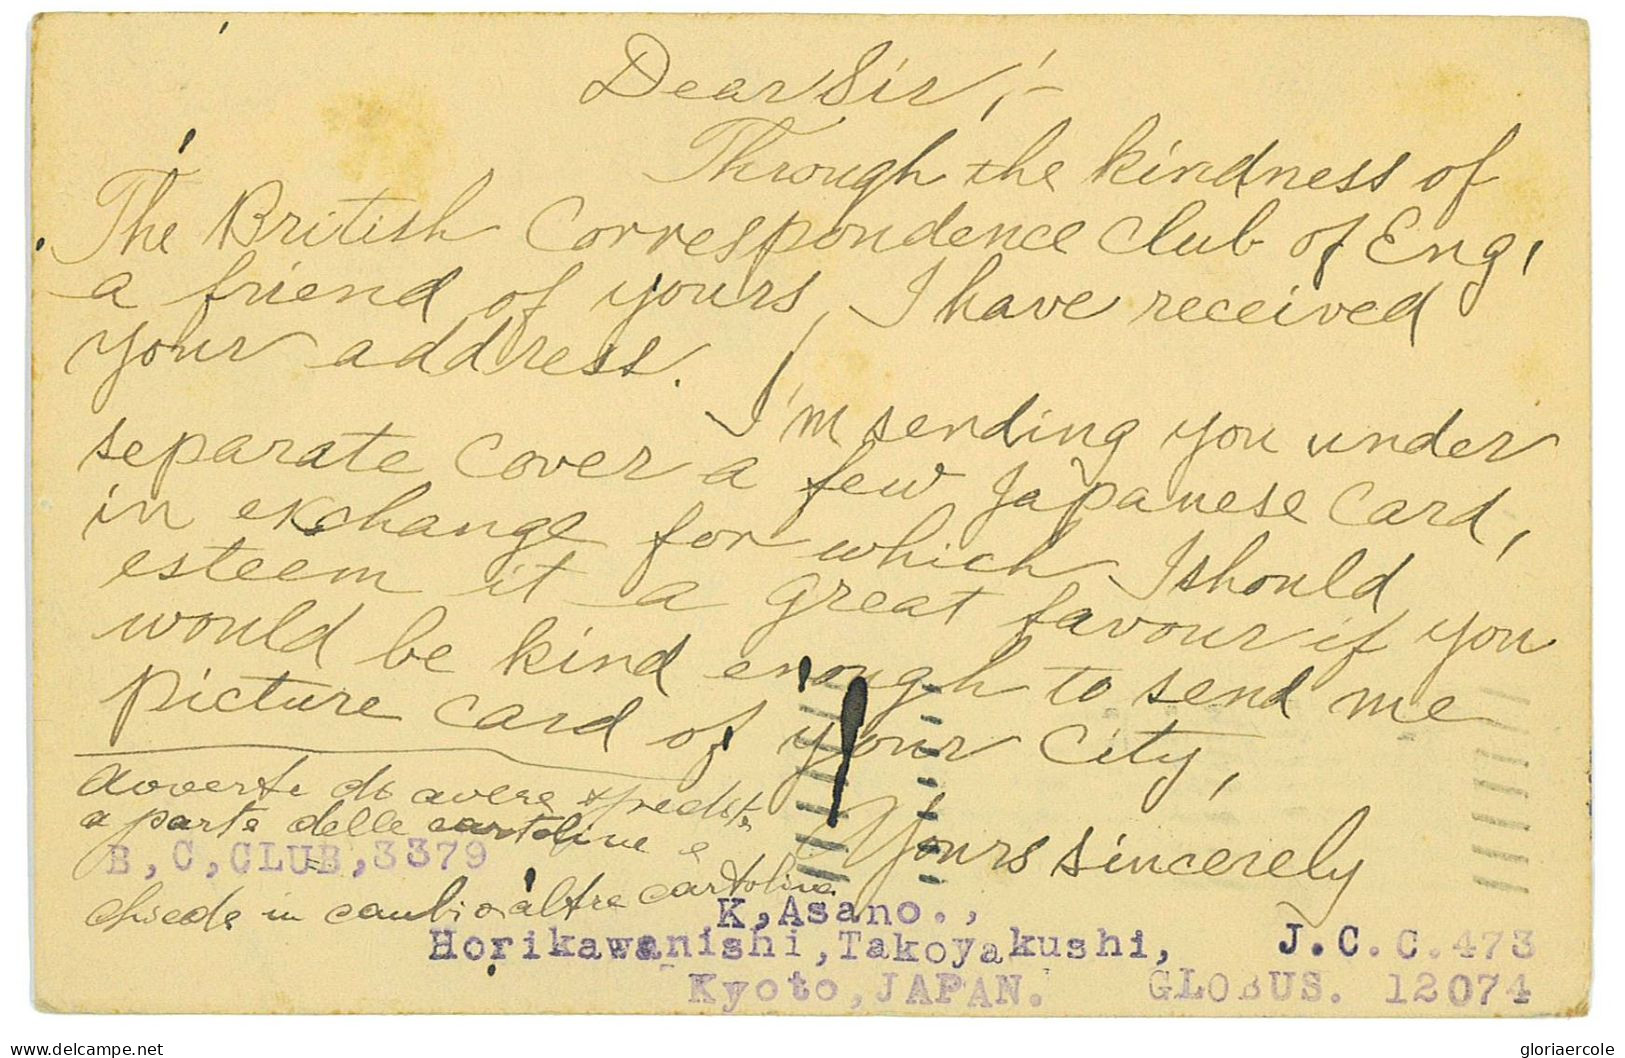 Dear Sir,-
Through the kindness of
The British Correspondence Club of Eng,
a friend of yours, I have received
your address.
I'm sending you under
separate cover a few Japanese Card,
in exchange for which I should
esteem it a great favour if you
would be kind enough to send me
Picture Card of your City,
Yours sincerely
avverte di avere spedito
a parte delle cartoline e
chiede in cambio altre cartoline
B,C,CLUB,3379
K,Asano.,
Horikawanishi,Takoyakushi,
Kyoto,JAPAN.
J.C.C.473
GLOBUS. 12074
delcampe.net
gloriaercole